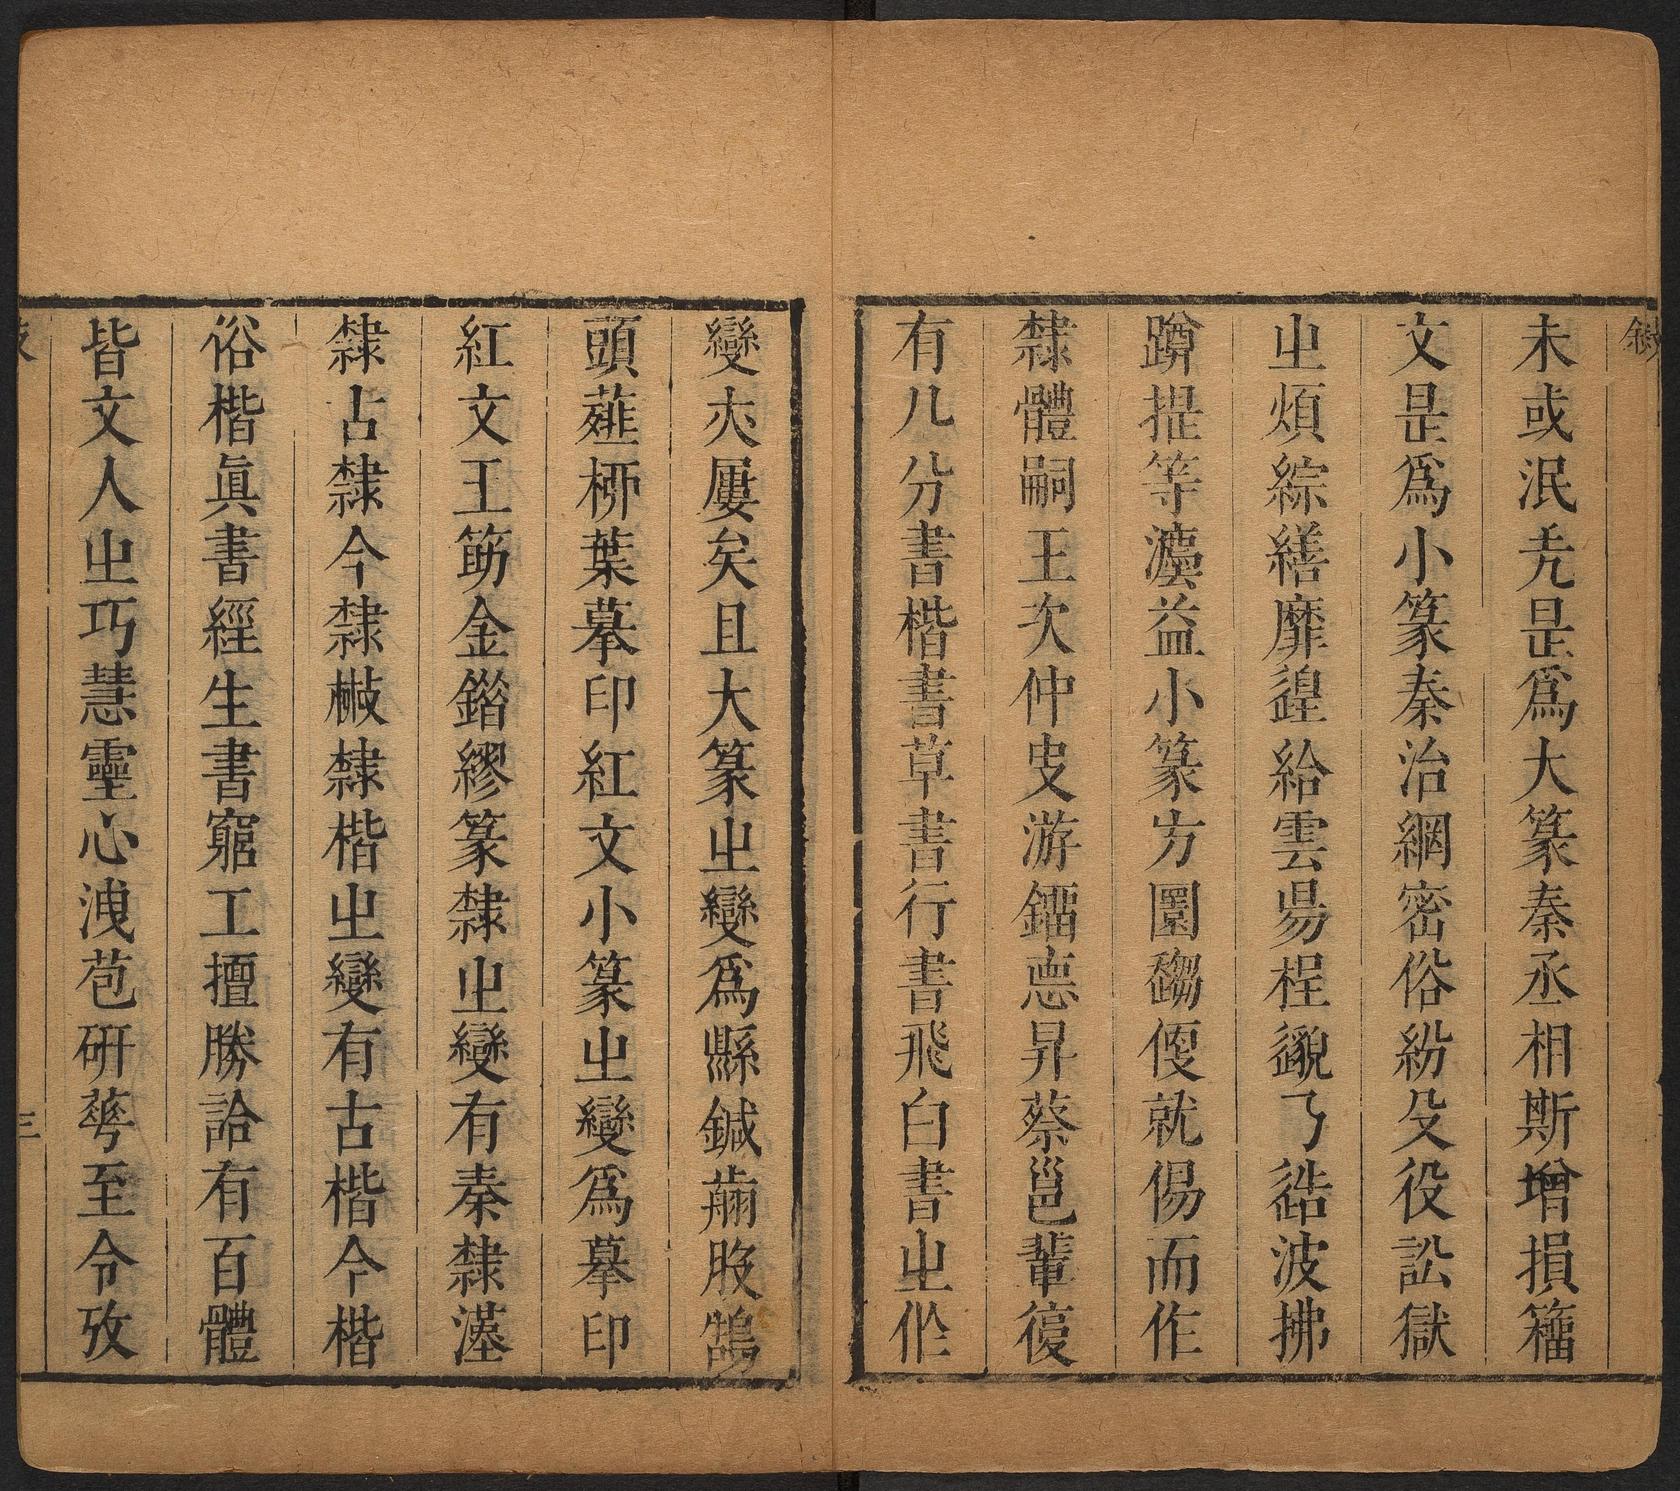 未或泯兂是爲大篆秦丞相斯增損籒
文是爲小篆秦治網密俗紛殳役訟獄
㞢煩綜繕靡遑給雲昜桯邈乃造波拂
蹲提等灋益小篆方圜趨偄就傷而作
隸體嗣王次仲史游鎦悳昇蔡邕輩復
有八分書楷書草書行書飛白書㞢作
變夶屢矣且大篆㞢變爲縣鍼薾股鵠
頭薤桺葉摹印紅文小篆㞢變爲摹印
紅文王筋金錯繆篆隸㞢變有秦隸漢
隸古隸今隸散隸楷㞢變有古楷今楷
俗楷眞書經生書窮工擅勝詥有百體
皆文人㞢巧慧靈心洩苞硏蕚至令攷
敘
三